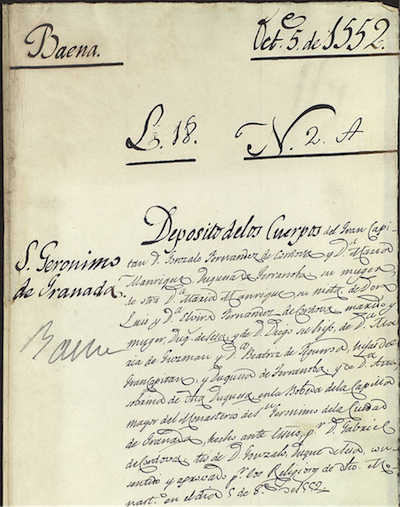 Baena.
Oct.e 5. de 1552.
L. 18. N. 2. A
S. Geronimo
de Granada.
Baena
Deposito delos Cuerpos del Gran Capi-
tan D. Gonzalo Fernandez de Cordova y D.a Maria
Manrique Duquesa de Terranova su muger,
de otra D.a Maria Manrique su nieta de Don
Luis y D.a Elvira Fernandez de Cordova marido y
muger, Duq.s de Sesa, y de D. Diego su hijo, de D.a Ma-
ria de Guzman y D.a Beatriz de Figueroa, nietas del
Gran Capitan, y Duquesa de Terranova y de D.a
de dha Duquesa en la Bobeda dela Capilla
mayor del Monasterio de S.n Geronimo dela Ciudad
de Granada, hecho ante p.r D. Gabriel
de Cordova tio de D. Gonzalo, Duque de Sesa, con-
sentido y aprovado p.r los Religiosos de dho. Mo-
nast.o en el dia 5 de 8.e de 1552.